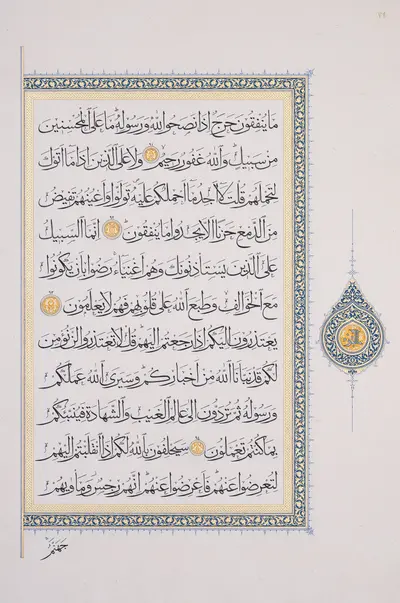 ما ينفقون حرج إذا نصحوا لله ورسوله ما على المحسنين
من سبيل والله غفور رحيم ولا على الذين إذا ما أتوك
لتحملهم قلت لا أجد ما أحملكم عليه تولوا وأعينهم تفيض
من الدمع حزنا ألا يجدوا ما ينفقون إنما السبيل
على الذين يستأذنونك وهم أغنياء رضوا بأن يكونوا
مع الخوالف وطبع الله على قلوبهم فهم لا يعلمون
يعتذرون إليكم إذا رجعتم إليهم قل لا تعتذروا لن نؤمن
لكم قد نبأنا الله من أخباركم وسيرى الله عملكم
ورسوله ثم تردون إلى عالم الغيب والشهادة فينبئكم
بما كنتم تعملون سيحلفون بالله لكم إذا انقلبتم إليهم
لتعرضوا عنهم فأعرضوا عنهم إنهم رجس ومأويهم
جهنم